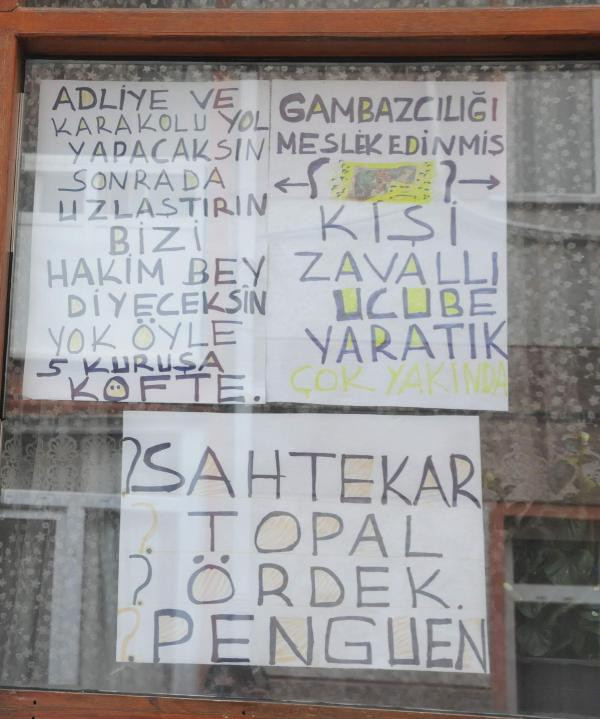 ADLİYE VE
KARAKOLU YOL
YAPACAKSIN
SONRADA
UZLAŞTIRIN
BİZİ
HAKİM BEY
DİYECEKSİN
YOK ÖYLE
5 KURUŞA
KÖFTE.
GAMBAZCILIĞI
MESLEK EDİNMİŞ
KİŞİ
ZAVALLI
UCUBE
YARATIK
ÇOK YAKINDA
?SAHTEKAR
? TOPAL
? ÖRDEK.
? PENGUEN